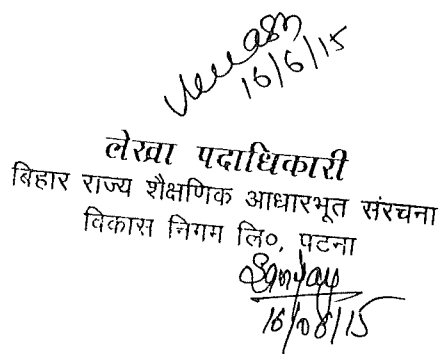 16/6/15
लेखा पदाधिकारी
बिहार राज्य शैक्षणिक आधारभूत संरचना
विकास निगम लि०, पटना
Sanjay
16/06/15